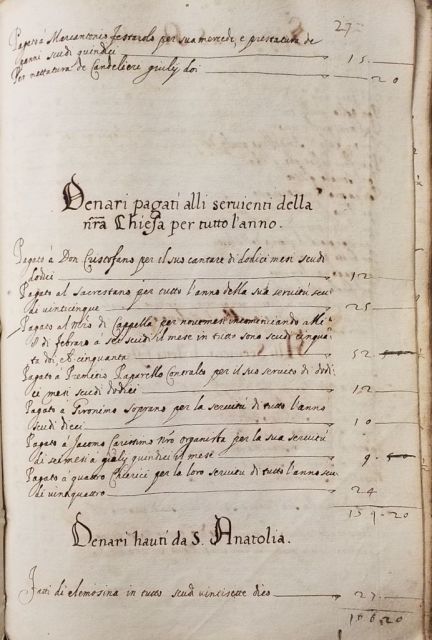 27
Pagato à Marcantonio festarolo per sua mercede, e prestatura de
panni scudi quindici 15.
Per nettatura de Candeliere giulij doi 20
Denari pagati alli seruienti della
nr̃a Chiesa per tutto l'anno.
Pagato à Don Cristofano per il suo cantare di dodici mesi scudi
dodici 12
Pagato al sacrestano per tutto l'anno della sua seruitù scu
di vinticinque 25
Pagato al Mr̃o di Cappella per noue mesi incominciando alli
8 di febraro a sei scudi il mese in tutto sono scudi cinquã
ta doi 52
Pagato à Paparello Contralto per il suo seruitio di dodi
ci mesi scudi dodici 12
Pagato a Gironimo soprano per la seruitù di tutto l'anno
scudi dieci 10
Pagato à Jacomo nr̃o organista per la sua seruitù
di sei mesi a giulij quindici il mese 9
Pagato à quattro Chierici per la loro seruitù di tutto l'anno scu
di vintiquattro 24
159.20
Denari hauti da S. Anatolia.
fatti di elemosina in tutto scudi vintisette dico 27